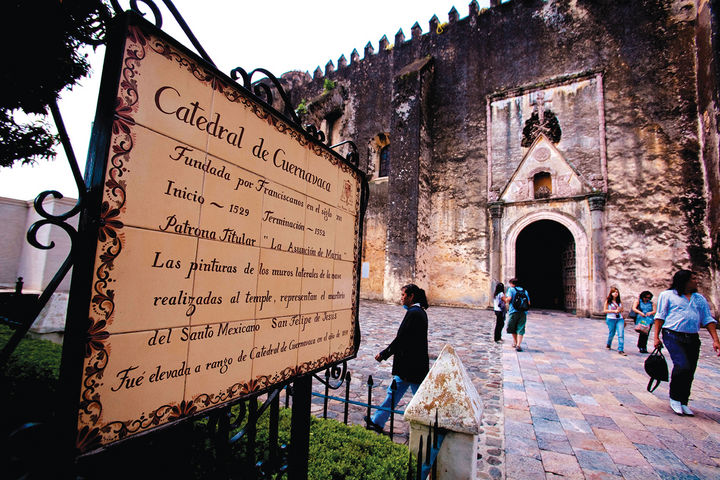 Catedral de Cuernavaca
Fundada por Franciscanos en el siglo XVI
Inicio ~ 1529 Terminación ~ 1552
Patrona Titular "La Asunción de Maria"
Las pinturas de los muros laterales de la nave
realizadas al temple, representan el martirio
del Santo Mexicano San Felipe de Jesús
Fué elevada a rango de Catedral de Cuernavaca en el año de